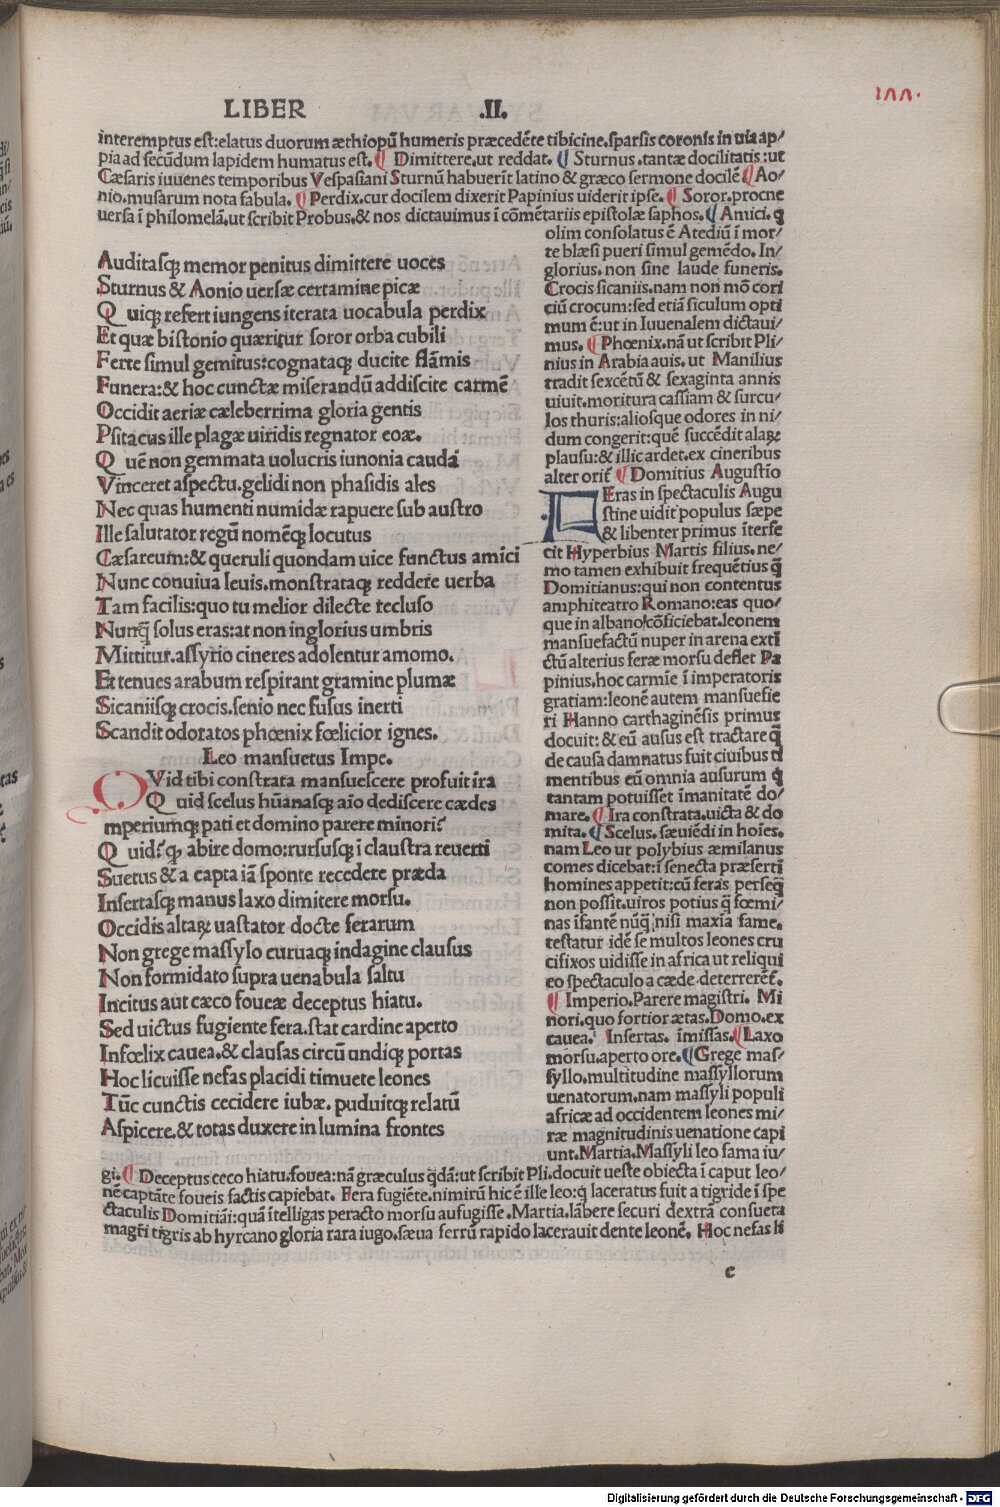 LIBER .II.
interemptus est:elatus duorum æthiopũ humeris præcedẽte tibicine.sparsis coronis in uia ap/
pia ad secũdum lapidem humatus est. Dimittere.ut reddat. Sturnus.tantæ docilitatis:ut
Cæsaris iuuenes temporibus Vespasiani Sturnũ habuerĩt latino & græco sermone docilẽ Ao/
nio.musarum nota fabula. Perdix.cur docilem dixerit Papinius uiderit ipse. Soror.procne
uersa ĩ philomelã.ut scribit Probus.& nos dictauimus ĩ cõmẽtariis epistolæ saphos. Amici.q̃
Auditasq; memor penitus dimittere uoces
Sturnus & Aonio uersæ certamine picæ
Quiq; refert iungens iterata uocabula perdix
Et quæ bistonio quæritur soror orba cubili
Ferte simul gemitus:cognataq; ducite flãmis
Funera:& hoc cunctæ miserandũ addiscite carmẽ
Occidit aeriæ cæleberrima gloria gentis
Psitacus ille plagæ uiridis regnator eoæ.
Quẽ non gemmata uolucris iunonia caudã
Vinceret aspectu.gelidi non phasidis ales
Nec quas humenti numidæ rapuere sub austro
Ille salutator regũ nomẽq; locutus
Cæsareum:& queruli quondam uice functus amici
Nunc conuiua leuis.monstrataq; reddere uerba
Tam facilis:quo tu melior dilecte recluso
Nunq̃ solus eras:at non inglorius umbris
Mittitur.assyrio cineres adolentur amomo.
Et tenues arabum respirant gramine plumæ
Sicaniisq; crocis.senio nec fusus inerti
Scandit odoratos phœnix fœlicior ignes.
Leo mansuetus Impe.
QVid tibi constrata mansuescere profuit ira
Quid scelus hũanasq; aĩo dediscere cædes
mperiumq; pati et domino parere minori?
Quid? q; abire domo:rursusq; ĩ claustra reuerti
Suetus & a capta iã sponte recedere præda
Insertasq; manus laxo dimitere morsu.
Occidis altaꝝ uastator docte ferarum
Non grege massylo curuaq; indagine clausus
Non formidato supra uenabula saltu
Incitus aut cæco foueæ deceptus hiatu.
Sed uictus fugiente fera.stat cardine aperto
Infœlix cauea.& clausas circũ undiq; portas
Hoc licuisse nefas placidi timuete leones
Tũc cunctis cecidere iubæ.puduitq; relatũ
Aspicere.& totas duxere in lumina frontes
olim consolatus ẽ Atediũ ĩ mor/
te blæsi pueri simul gemẽdo. In/
glorius.non sine laude funeris.
Crocis sicaniis.nam non mõ cori
ciũ crocum:sed etiã siculum opti
mum ẽ:ut in Iuuenalem dictaui/
mus. Phœnix.nã ut scribit Pli/
nius in Arabia auis.ut Manilius
tradit sexcẽtũ & sexaginta annis
uiuit.moritura cassiam & surcu/
los thuris:aliosque odores in ni/
dum congerit:quẽ succẽdit alaꝝ
plausu:& illic ardet.ex cineribus
alter orit̃ Domitius Augustĩo
FEras in spectaculis Augu
stine uidit populus sæpe
& libenter primus ĩterfe
cit Hyperbius Martis filius.ne/
mo tamen exhibuit frequẽtius q̃
Domitianus:qui non contentus
amphiteatro Romano:eas quo/
que in albano cõficiebat.leonem
mansuefactũ nuper in arena extĩ
ctũ alterius feræ morsu deflet Pa
pinius.hoc carmĩe ĩ imperatoris
gratiam:leonẽ autem mansuefie
ri Hanno carthaginẽsis primus
docuit:& eũ ausus est tractare q̃
de causa damnatus fuit ciuibus ti
mentibus eũ omnia ausurum q̃
tantam potuisset ĩmanitatẽ do/
mare. Ira constrata.uicta & do
mita. Scelus.sæuiẽdi in hoĩes.
nam Leo ut polybius æmilanus
comes dicebat:ĩ senecta præsertĩ
homines appetit:cũ feras perseq̃
non possit.uiros potius q̃ fœmi/
nas ĩfantẽ nũq̃ nisi maxĩa fame.
testatur idẽ se multos leones cru
cifixos uidisse in africa ut reliqui
eo spectaculo a cæde deterrerẽt̃.
Imperio.Parere magistri. Mi
nori.quo fortior ætas.Domo.ex
cauea. Insertas. ĩmissas. Laxo
morsu.aperto ore. Grege mas/
syllo.multitudine massyllorum
uenatorum.nam massyli populi
africæ ad occidentem leones mi/
ræ magnitudinis uenatione capi
unt.Martia.Massyli leo fama iu/
gi. Deceptus ceco hiatu.fouea:nã græculus q̃dã:ut scribit Pli.docuit ueste obiecta ĩ caput leo/
nẽ captãte foueis factis capiebat. Fera fugiẽte.nimirũ hic ẽ ille leo:q̃ laceratus fuit a tigride ĩ spe
ctaculis Domitiãi:quã ĩtelligas peracto morsu aufugisse.Martia.lãbere securi dextrã consueta
magr̃i tigris ab hyrcano gloria rara iugo.sæua ferrũ rapido lacerauit dente leonẽ. Hoc nefas li
c
Digitalisierung gefördert durch die Deutsche Forschungsgemeinschaft - DFG